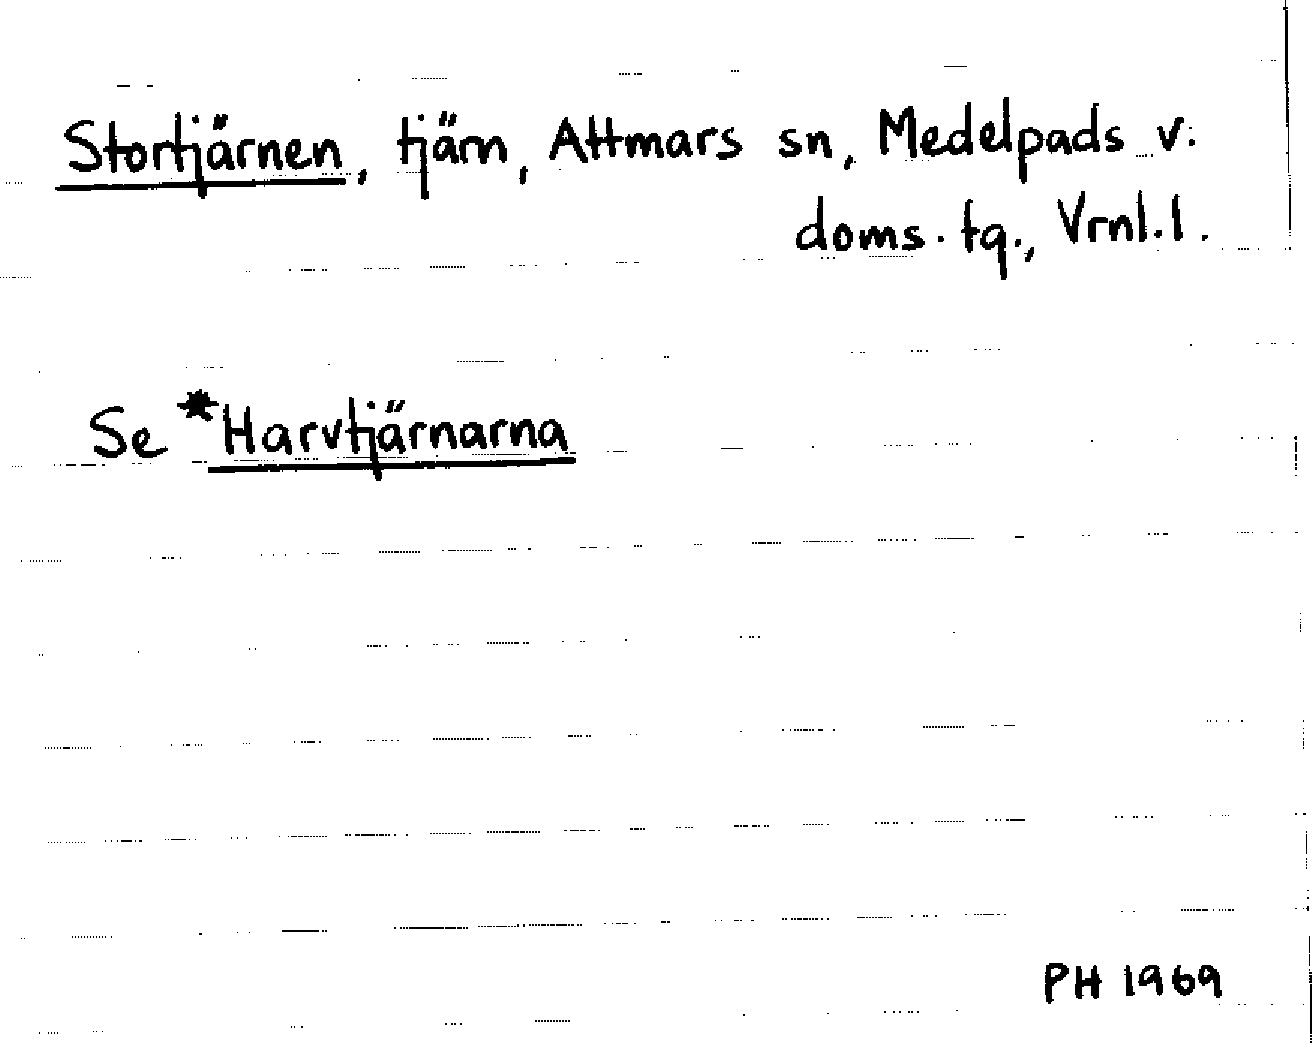 Stortjärnen, tjärn, Attmars sn, Medelpads v.
doms. tg., Vrnl. l.
Se *Harvtjärnarna
PH 1969